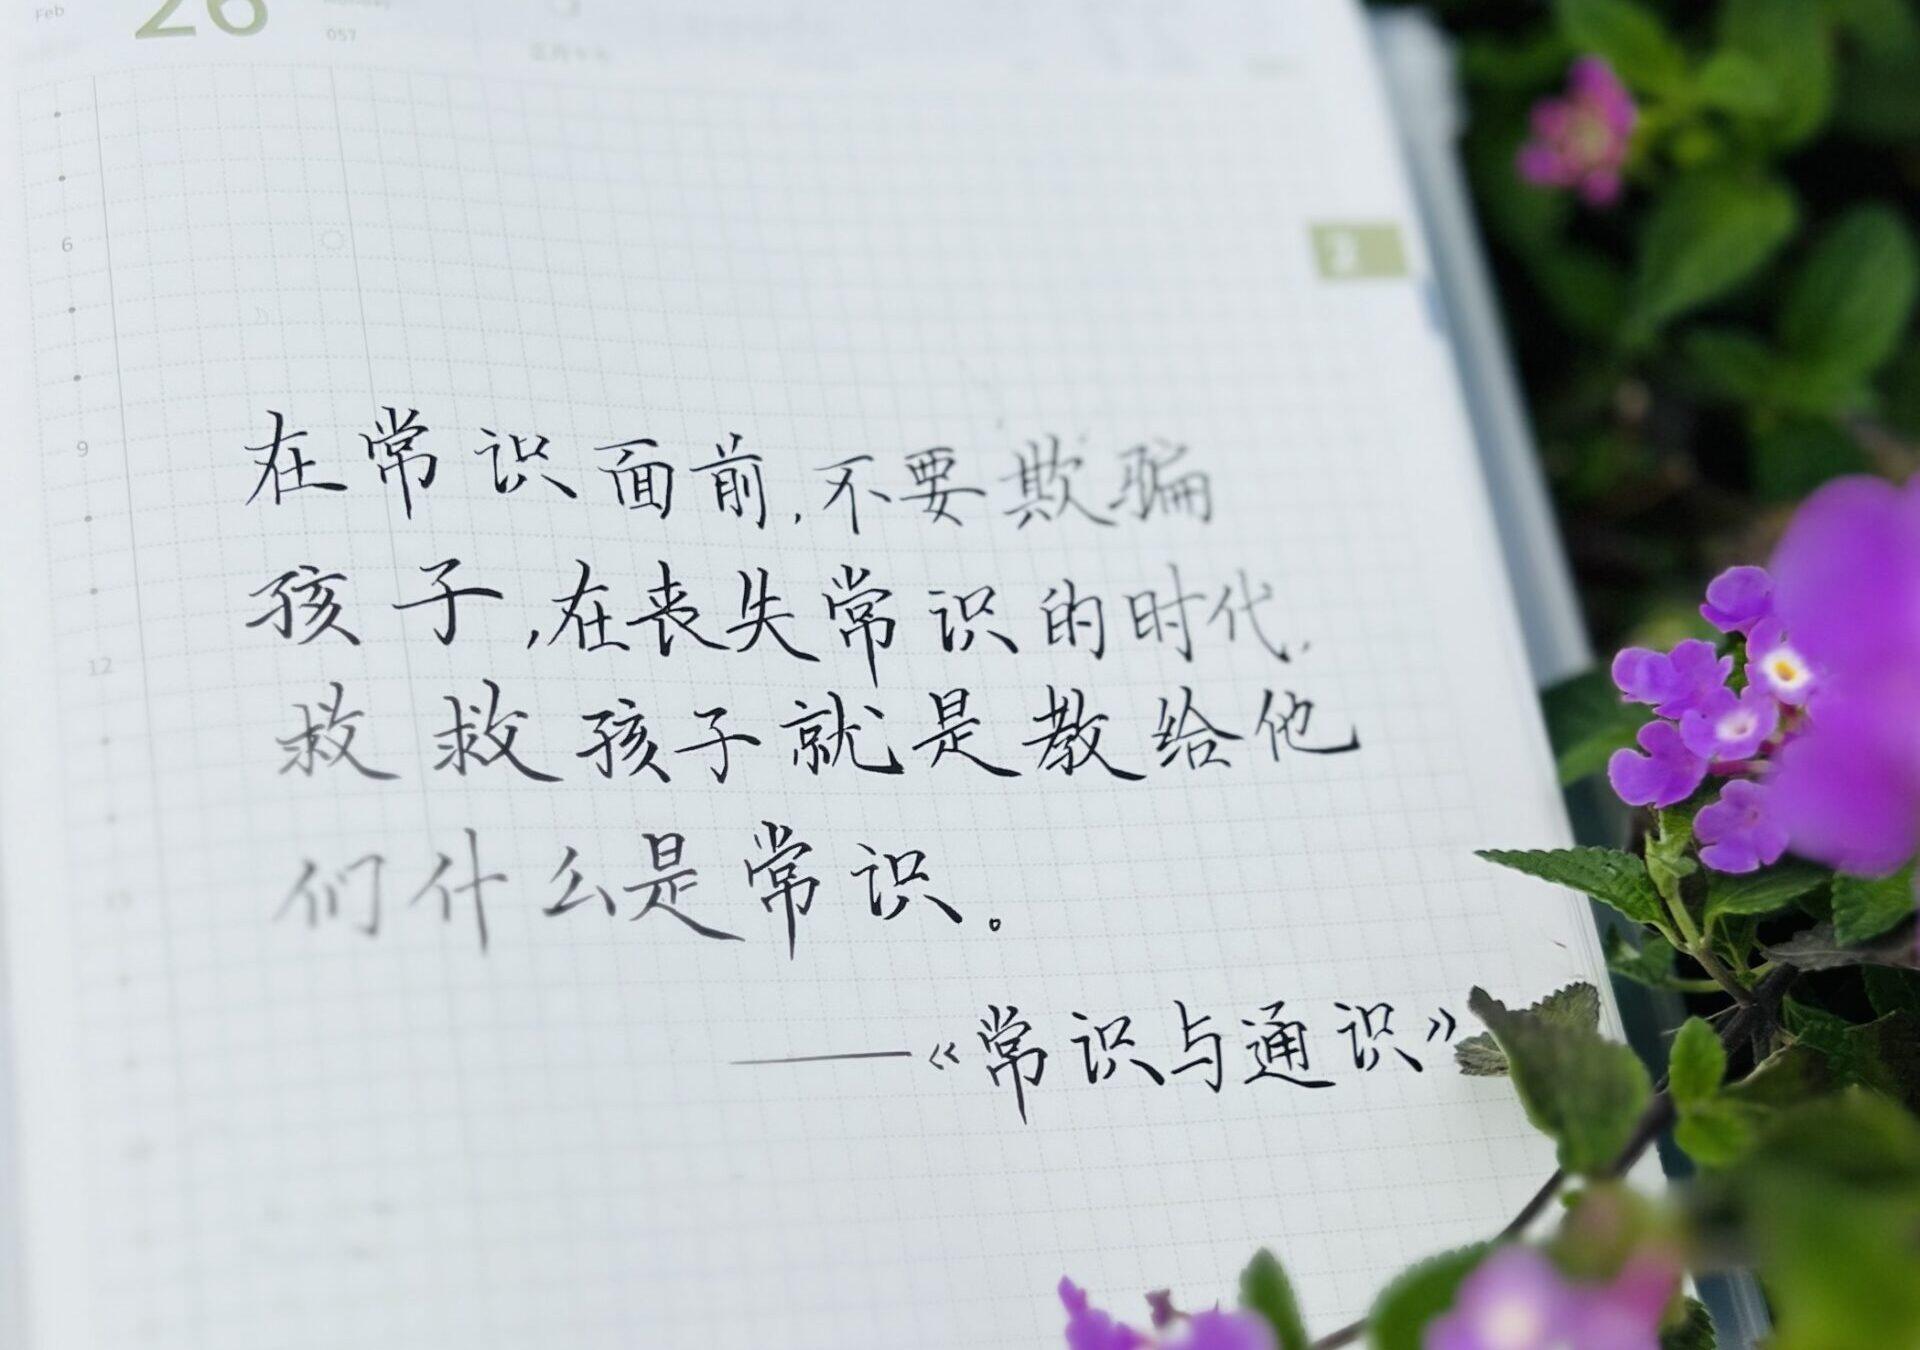 Feb
26
057
6
9
12
2
在常识面前,不要欺骗
孩子,在丧失常识的时代,
救救孩子就是教给他
们什么是常识。
——《常识与通识》